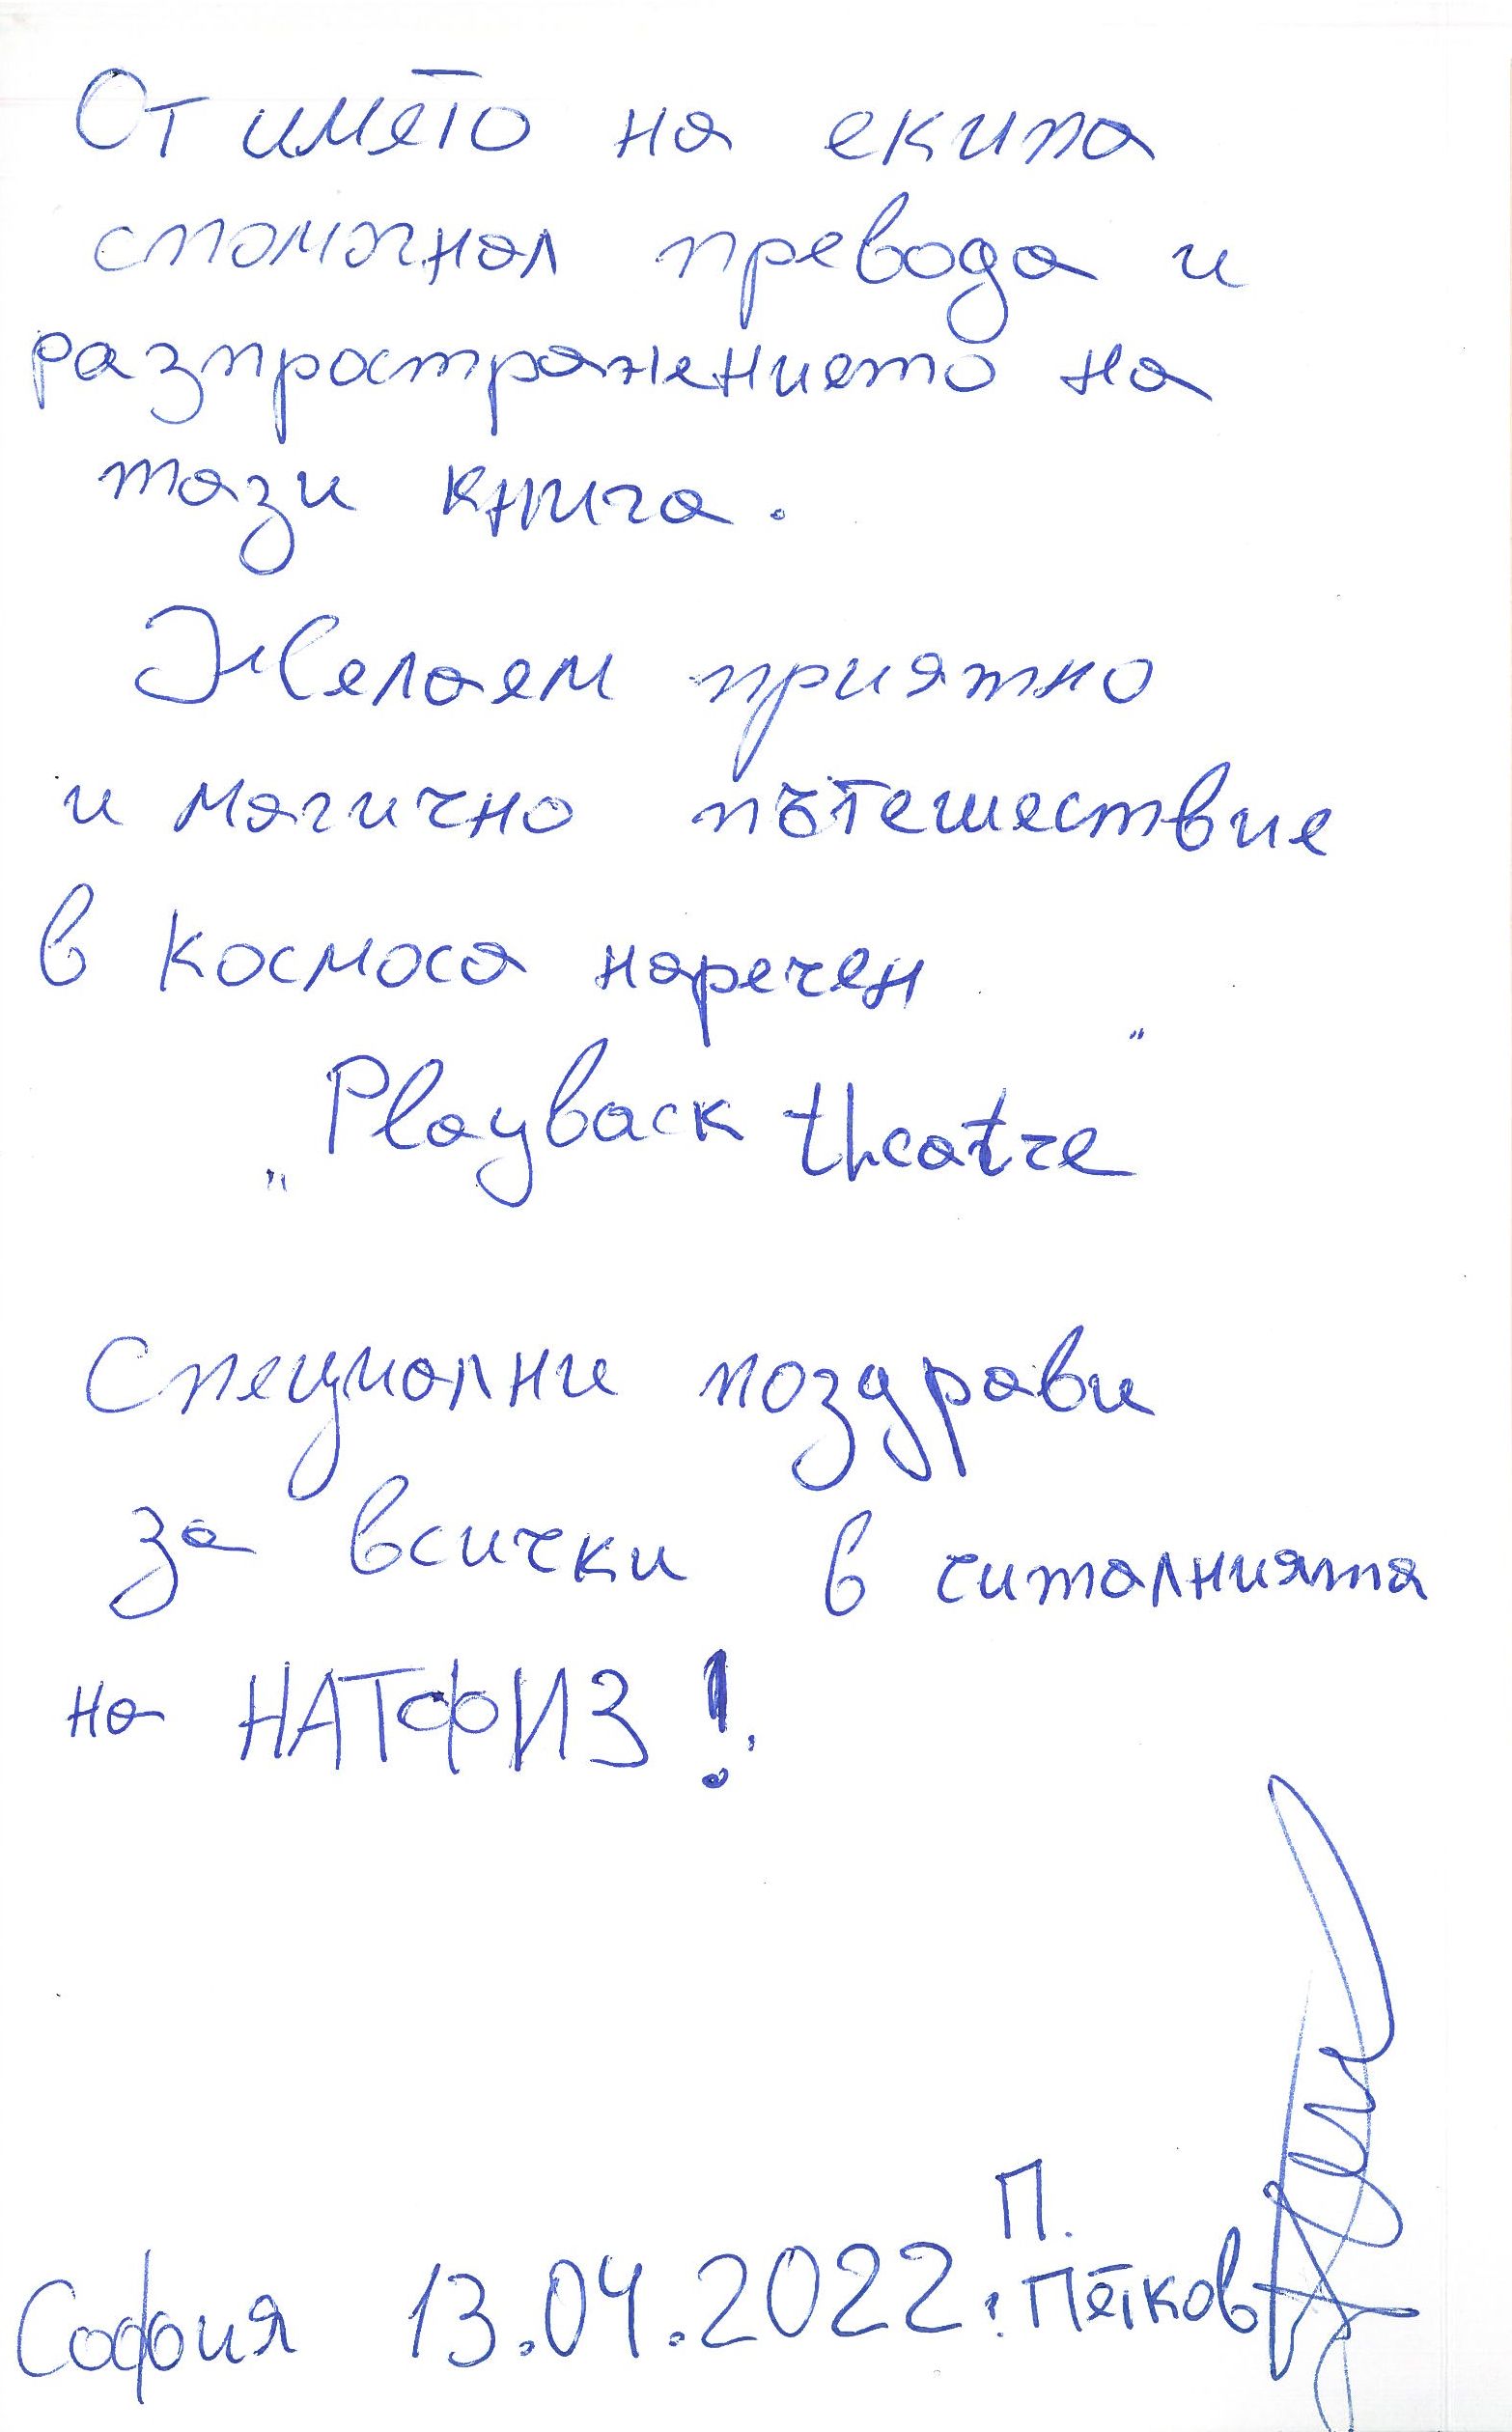 От името на екипа
спомогнал превода и
разпространението на
тази книга.
Желаем приятно
и магично пътешествие
в космоса наречен
„Playback theatre"
Специални поздрави
за всички в читалнията
на НАТФИЗ!
П.
София 13.04.2022г. Петков